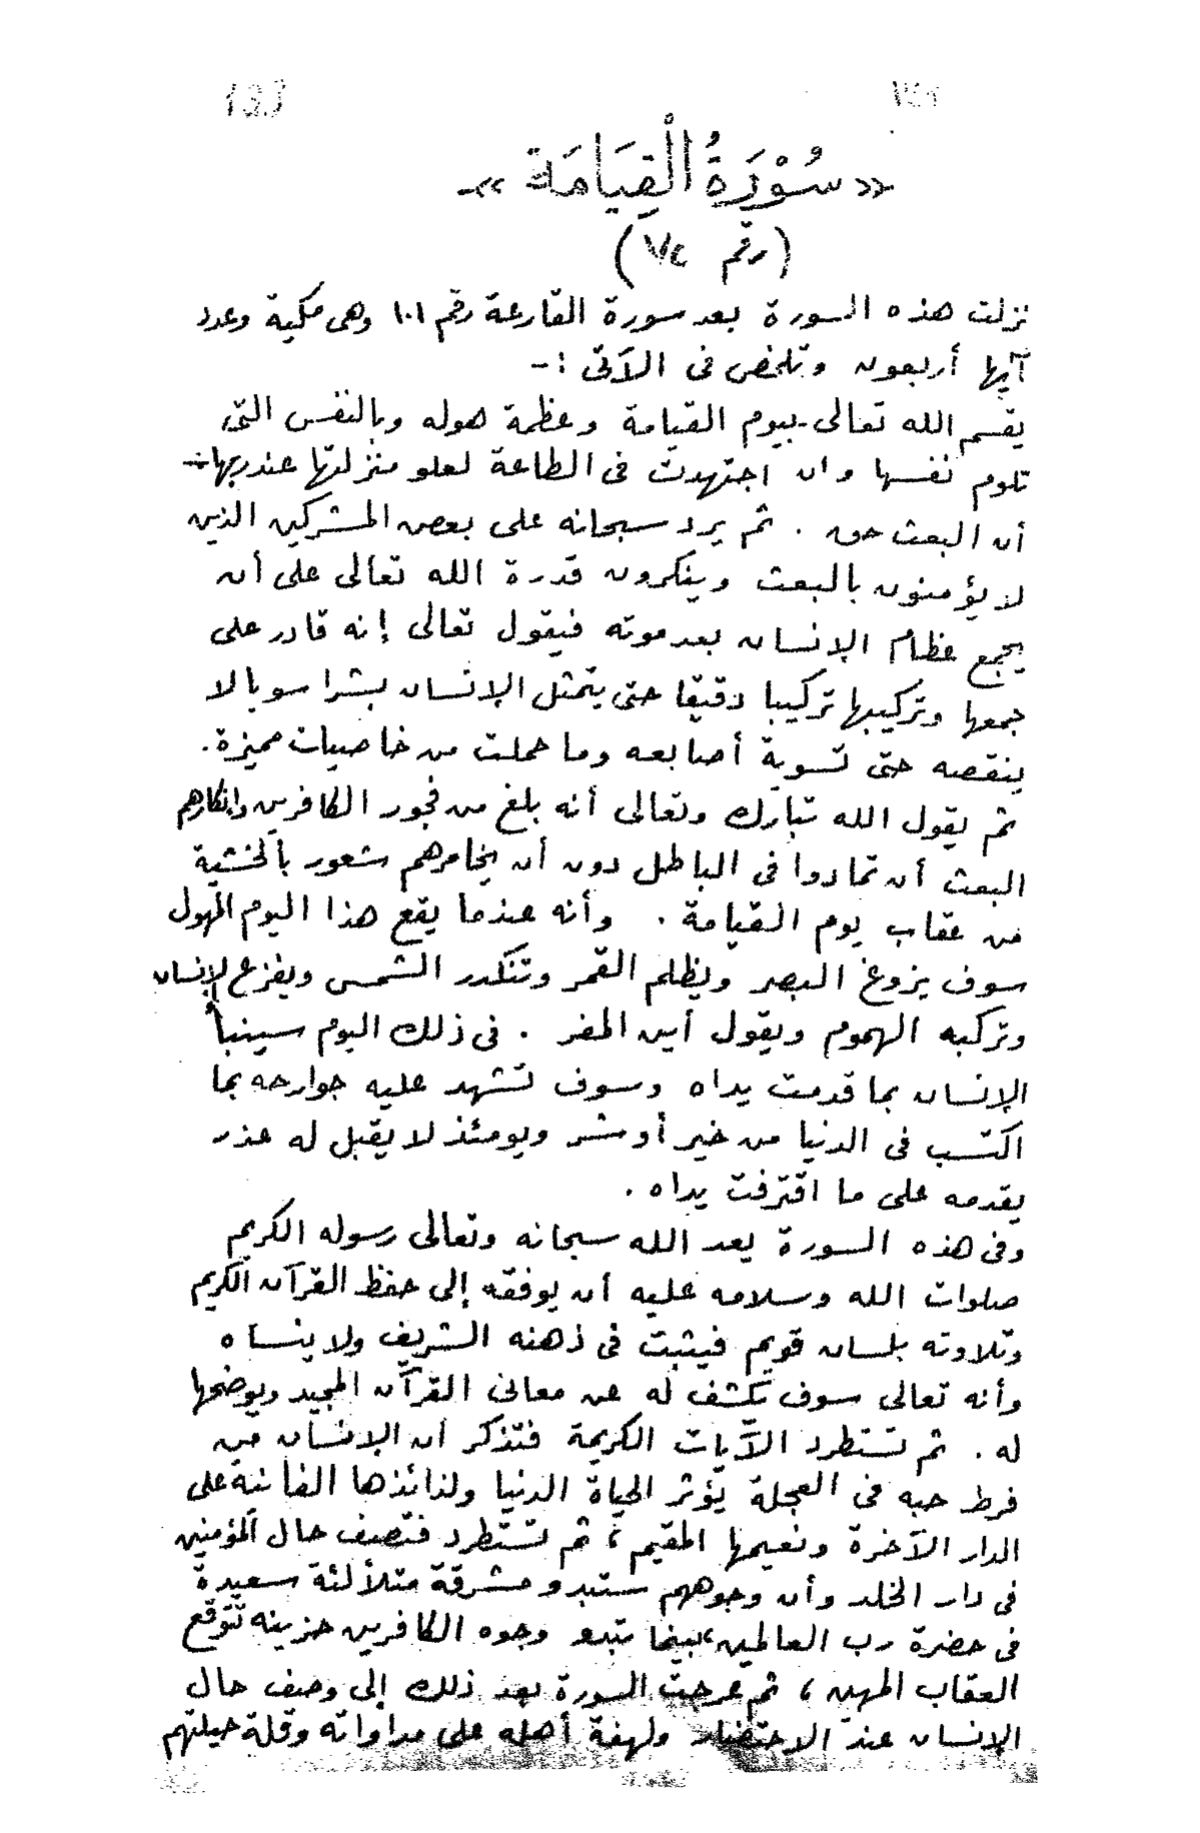 «سُوْرَةُ الْقِيَامَة»-
(رقم ٧٤)
نزلت هذه السورة بعد سورة القارعة رقم ١٠١ وهى مكية وعدد
آيها أربعون وتلخص فى الآتى :-
يقسم الله تعالى بيوم القيامة وعظمة هوله وبالنفس التى
تلوم نفسها وان اجتهدت فى الطاعة لعلو منزلتها عند ربها
أن البعث حق . ثم يرد سبحانه على بعض المشركين الذين
لا يؤمنون بالبعث وينكرون قدرة الله تعالى على أن
يجمع عظام الإنسان بعد موته فيقول تعالى إنه قادر على
جمعها وتركيبها تركيبا دقيقا حتى يتمثل الإنسان بشرا سويا لا
ينقصه حتى تسوية أصابعه وما حملت من خاصيات مميزة.
ثم يقول الله تبارك وتعالى أنه بلغ من فجور الكافرين وانكارهم
البعث أن تمادوا فى الباطل دون أن يخامرهم شعور بالخشية
من عقاب يوم القيامة . وأنه عندما يقع هذا اليوم المهول
سوف يزوغ البصر ويظلم القمر وتنكدر الشمس ويفزع الإنسان
وتركبه الهموم ويقول أين المفر . فى ذلك اليوم سينبأ
الإنسان بما قدمت يداه وسوف تشهد عليه جوارحه بما
اكتسب فى الدنيا من خير أو شر ويومئذ لا يقبل له عذر
يقدمه على ما اقترفت يداه .
وفى هذه السورة يعد الله سبحانه وتعالى رسوله الكريم
صلوات الله وسلامه عليه أن يوفقه إلى حفظ القرآن الكريم
وتلاوته بلسان قويم فيثبت فى ذهنه الشريف ولا ينساه
وأنه تعالى سوف يكشف له عن معانى القرآن المجيد ويوضحها
له . ثم تستطرد الآيات الكريمة فتذكر أن الإنسان من
فرط حبه فى العجلة يؤثر الحياة الدنيا ولذائذها الفانية على
الدار الآخرة ونعيمها المقيم ، ثم تستطرد فتصف حال المؤمنين
فى دار الخلد وأن وجوههم ستبدو مشرقة متلألئة سعيدة
فى حضرة رب العالمين ، بينما تبدو وجوه الكافرين حزينه تتوقع
العقاب المهين ، ثم عرجت السورة بعد ذلك إلى وصف حال
الإنسان عند الاحتضار ولهفة أهله على مداواته وقلة حيلتهم